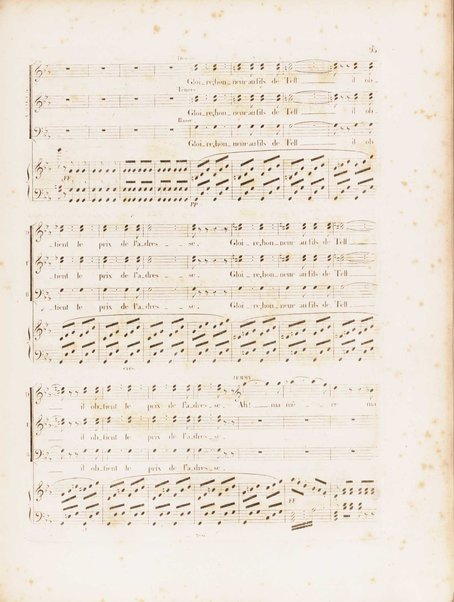 Des.
Gloi_re,hon_neur au fils de Tell ___ il ob_
Tenors
Gloi_re,hon_neur au fils de Tell ___ il ob_
Basses
Gloi_re,hon_neur au fils de Tell ___ il ob_
PP
_tient le prix de l'a_dres_ _ se. Gloi _ re,hon_ neur au fils de Tell ___
T
_tient le prix de l'a_dres_ _ se. Gloi _ re,hon_ neur au fils de Tell ___
B
_tient le prix de l'a_dres_ _ se. Gloi _ re,hon_ neur au fils de Tell ___
cres
JEMMY
D
___ il ob_tient le prix de l'a_dres_ se. Ah! ___ ma mè _ re ma
T
___ il ob_tient le prix de l'a_dres_ se.
B
___ il ob_tient le prix de l'a_dres_ se.